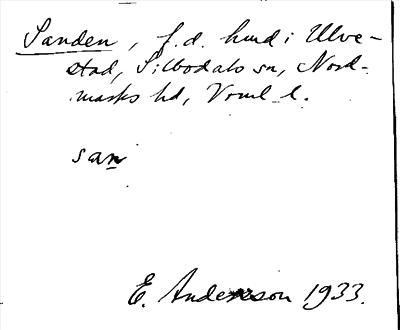 Sanden, f.d. hmd i Ulve-
stad, Silbodals sn, Nord-
marks hd, Vrml. l.
san
E. Andersson 1933.